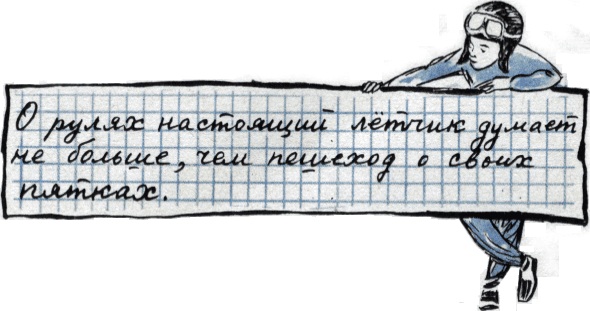 О рулях настоящий лётчик думает
не больше, чем пешеход о своих
пятках.